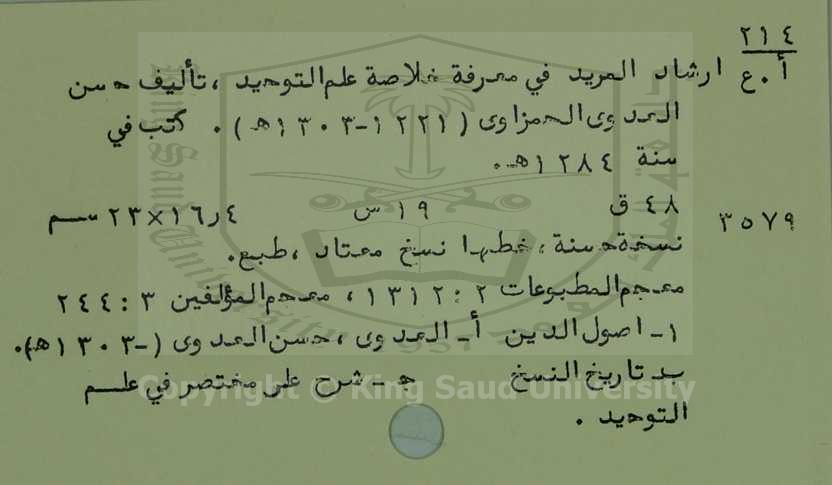 ٢١٤
أ . ع ارشاد المريد في معرفة خلاصة علم التوحيد ، تأليف حسن
العدوى الحمزاوى ( ١٢٢١ - ١٣٠٣ هـ ) . كتب في
سنة ١٢٨٤ هـ .
٤٨ ق ١٩ س ١٦٫٤×٢٣ سم
٣٥٧٩
نسخة حسنة ، خطها نسخ معتاد ، طبع .
معجم المطبوعات ٢ : ١٣١٢ ، معجم المؤلفين ٣ : ٢٤٤
١ - اصول الدين أ - العدوى ، حسن العدوى ( - ١٣٠٣ هـ ) .
ب - تاريخ النسخ جـ - شرح على مختصر في علم
التوحيد .
Copyright © King Saud University
King Saud University